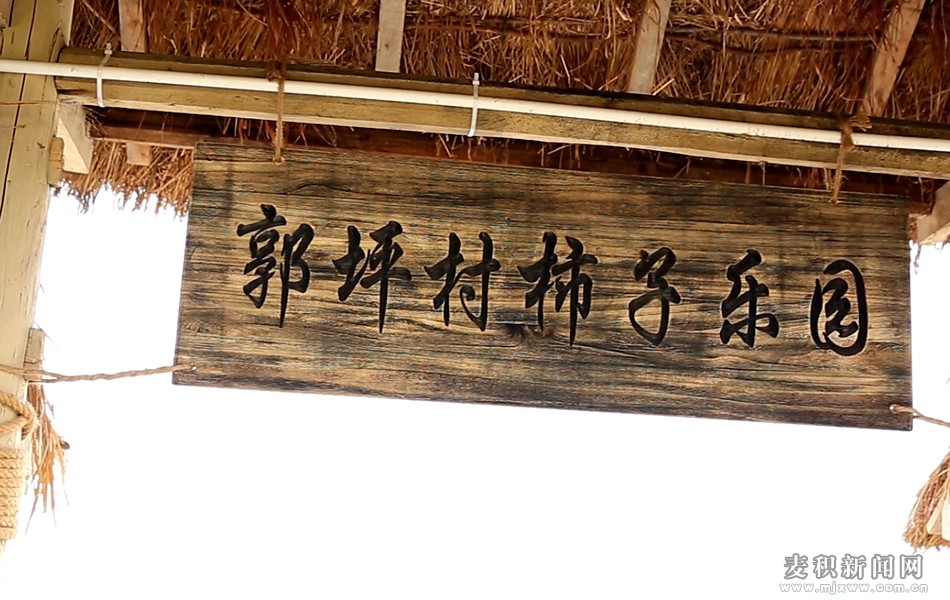 郭坪村柿子乐园
麦积新闻网
www.mjxww.com.cn